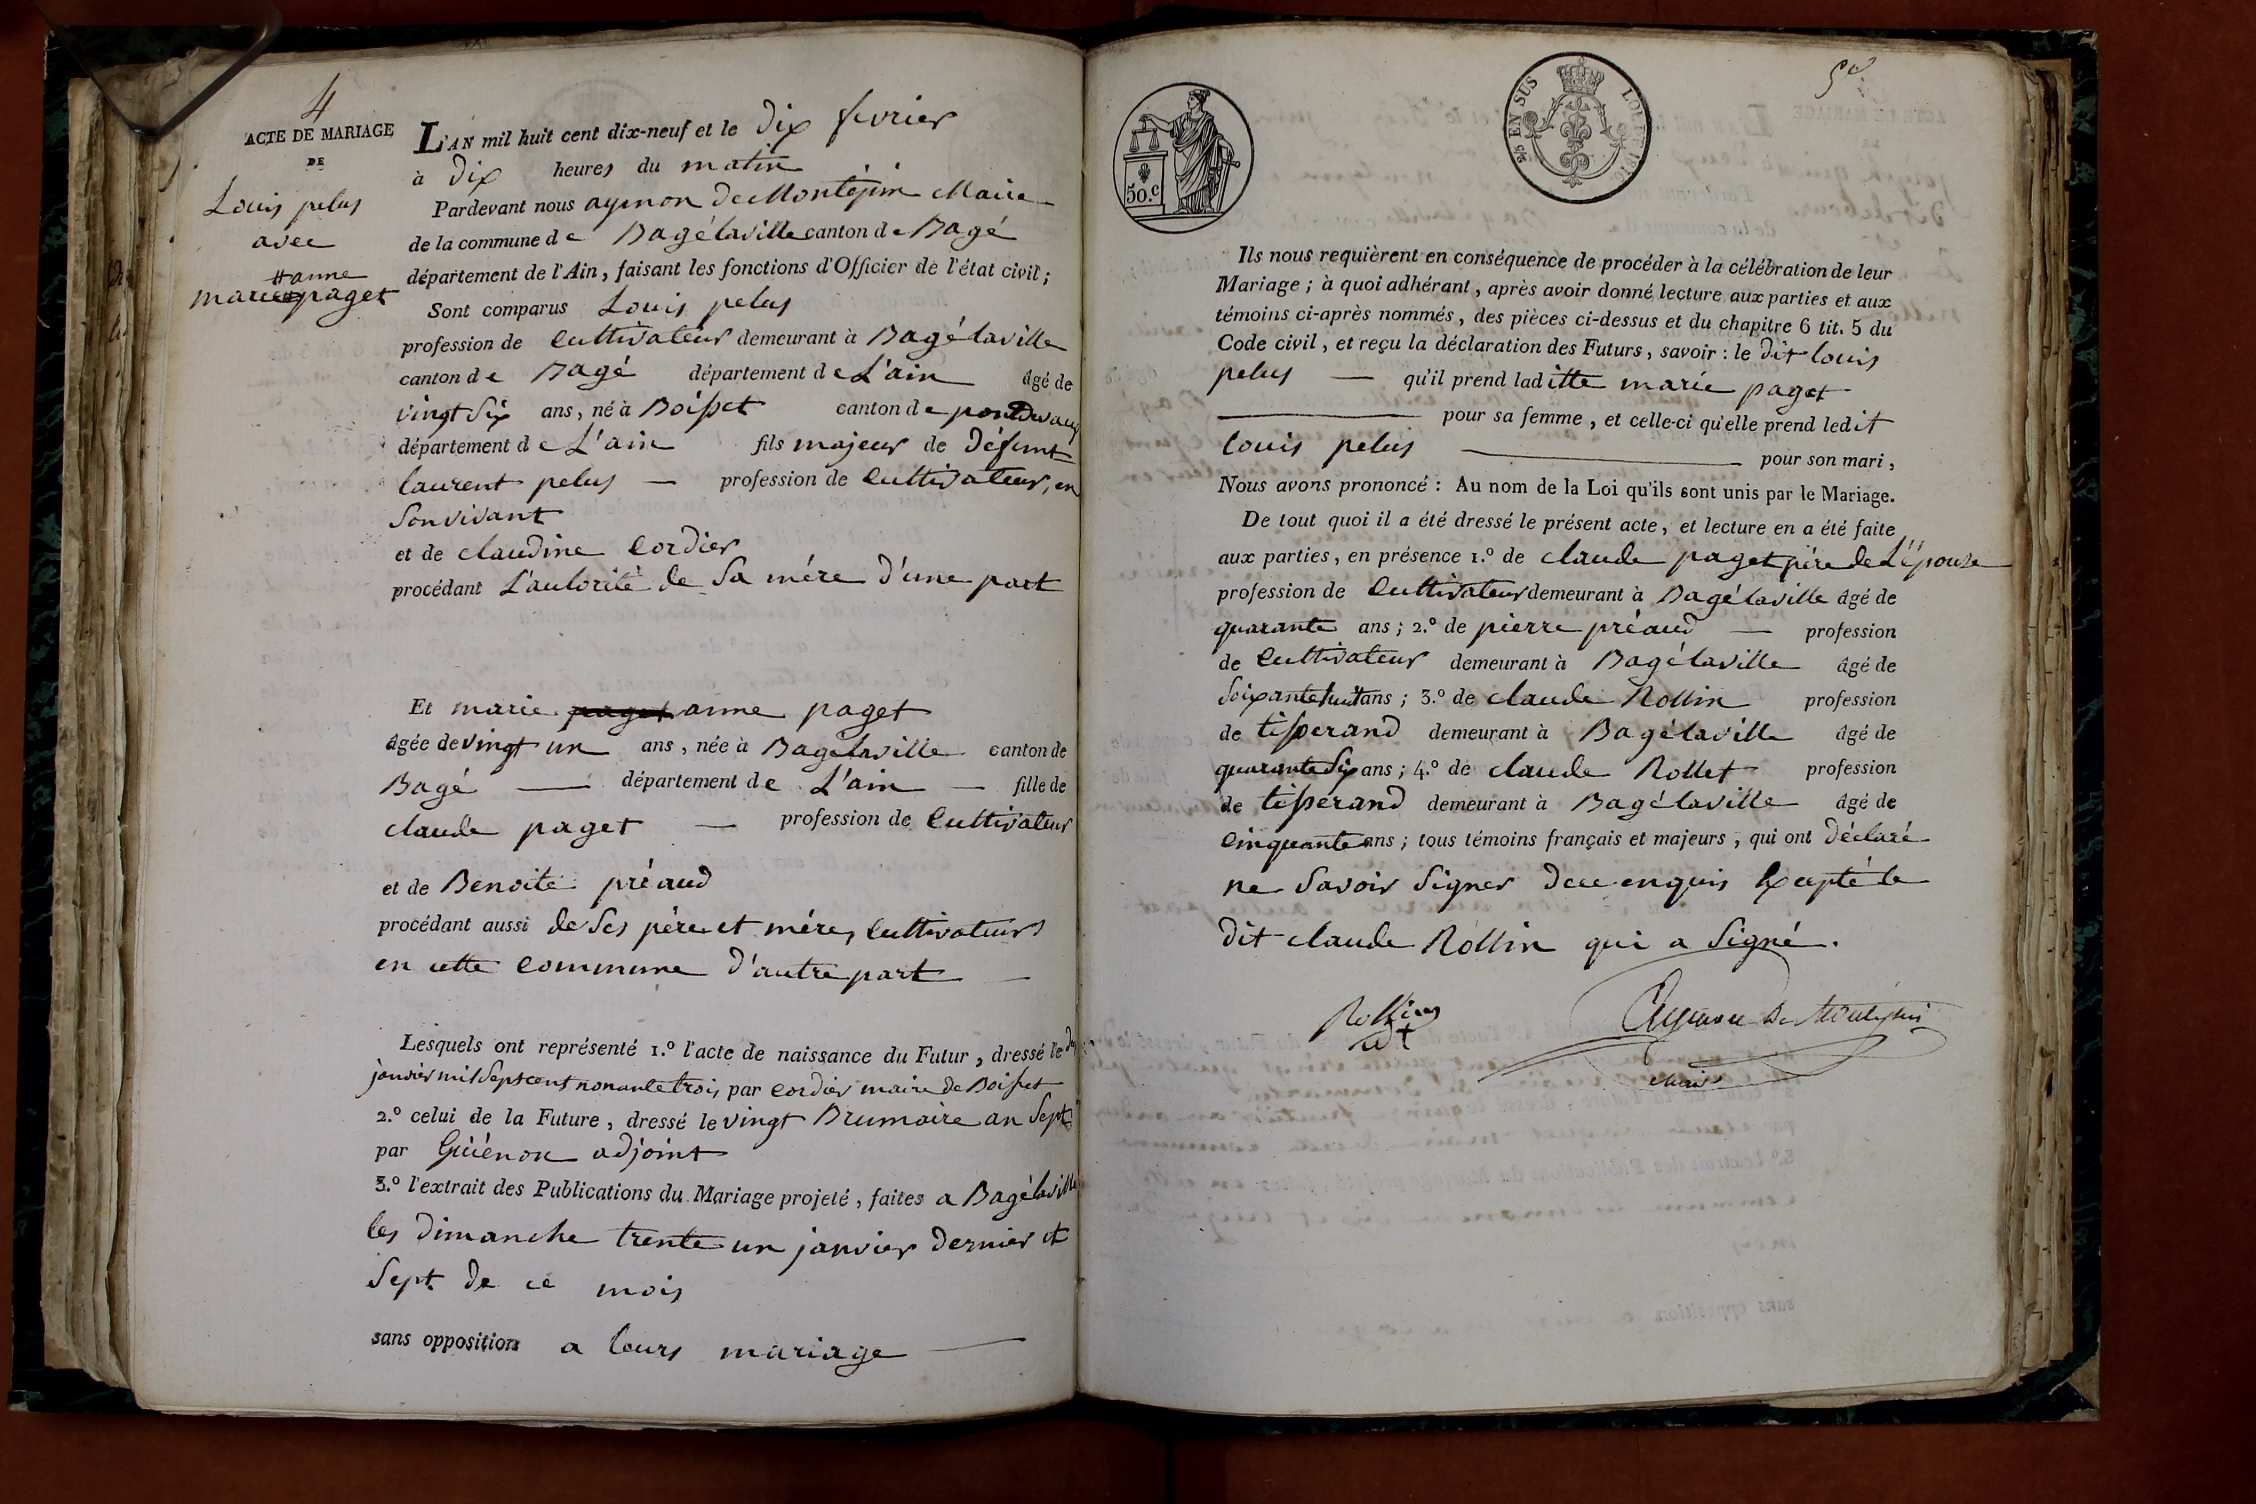 4
ACTE DE MARIAGE
DE
Louis pelus
avec
# anne
marie paget
L'AN mil huit cent dix-neuf et le dix fevrier
à dix heures du matin
Pardevant nous aymon de Montépin Maire
de la commune de Bagélaville canton de Bagé
département de l'Ain, faisant les fonctions d'Officier de l'état civil;
Sont comparus Louis pelus
profession de cultivateur demeurant à Bagélaville
canton de Bagé département de L'ain âgé de
vingt six ans, né à Boisset canton de pontdevaux
département de L'ain fils majeur de défunt
laurent pelus — profession de cultivateur, en
son vivant
et de claudine cordier
procédant L'autorité de Sa mére d'une part
Et marie paget anne paget
âgée de vingt un ans, née à Bagélaville canton de
Bagé — département de L'ain — fille de
claude paget — profession de cultivateur
et de Benoite préaud
procédant aussi de Ses pére et mére, cultivateurs
en cette commune d'autre part —
Lesquels ont représenté 1.º l'acte de naissance du Futur, dressé le
janvier mil Sept cent nonante trois par cordier maire de Boisset
2.º celui de la Future, dressé le vingt Brumaire an Sept
par Guénon adjoint
3.º l'extrait des Publications du Mariage projeté, faites a Bagélaville
les dimanche trente un janvier dernier et
Sept de ce mois
sans opposition a leurs mariage —
50.c
EN SUS
5e
Ils nous requièrent en conséquence de procéder à la célébration de leur
Mariage; à quoi adhérant, après avoir donné lecture aux parties et aux
témoins ci-après nommés, des pièces ci-dessus et du chapitre 6 tit. 5 du
Code civil, et reçu la déclaration des Futurs, savoir: le dit louis
pelus — qu'il prend laditte marie paget
— pour sa femme, et celle-ci qu'elle prend ledit
louis pelus — pour son mari,
Nous avons prononcé: Au nom de la Loi qu'ils sont unis par le Mariage.
De tout quoi il a été dressé le présent acte, et lecture en a été faite
aux parties, en présence 1.º de claude paget pére de L'épouse
profession de cultivateur demeurant à Bagélaville âgé de
quarante ans; 2.º de pierre préaud — profession
de cultivateur demeurant à Bagélaville âgé de
Soixante huit ans; 3.º de claude Rollin profession
de tisserand demeurant à Bagélaville âgé de
quarante Six ans; 4.º de claude Rollet profession
de tisserand demeurant à Bagélaville âgé de
cinquante ans; tous témoins français et majeurs, qui ont déclaré
ne Savoir Signer de ce enquis Excepté le
dit claude Rollin qui a Signé.
Rollin
Aymon De Montépin
Maire